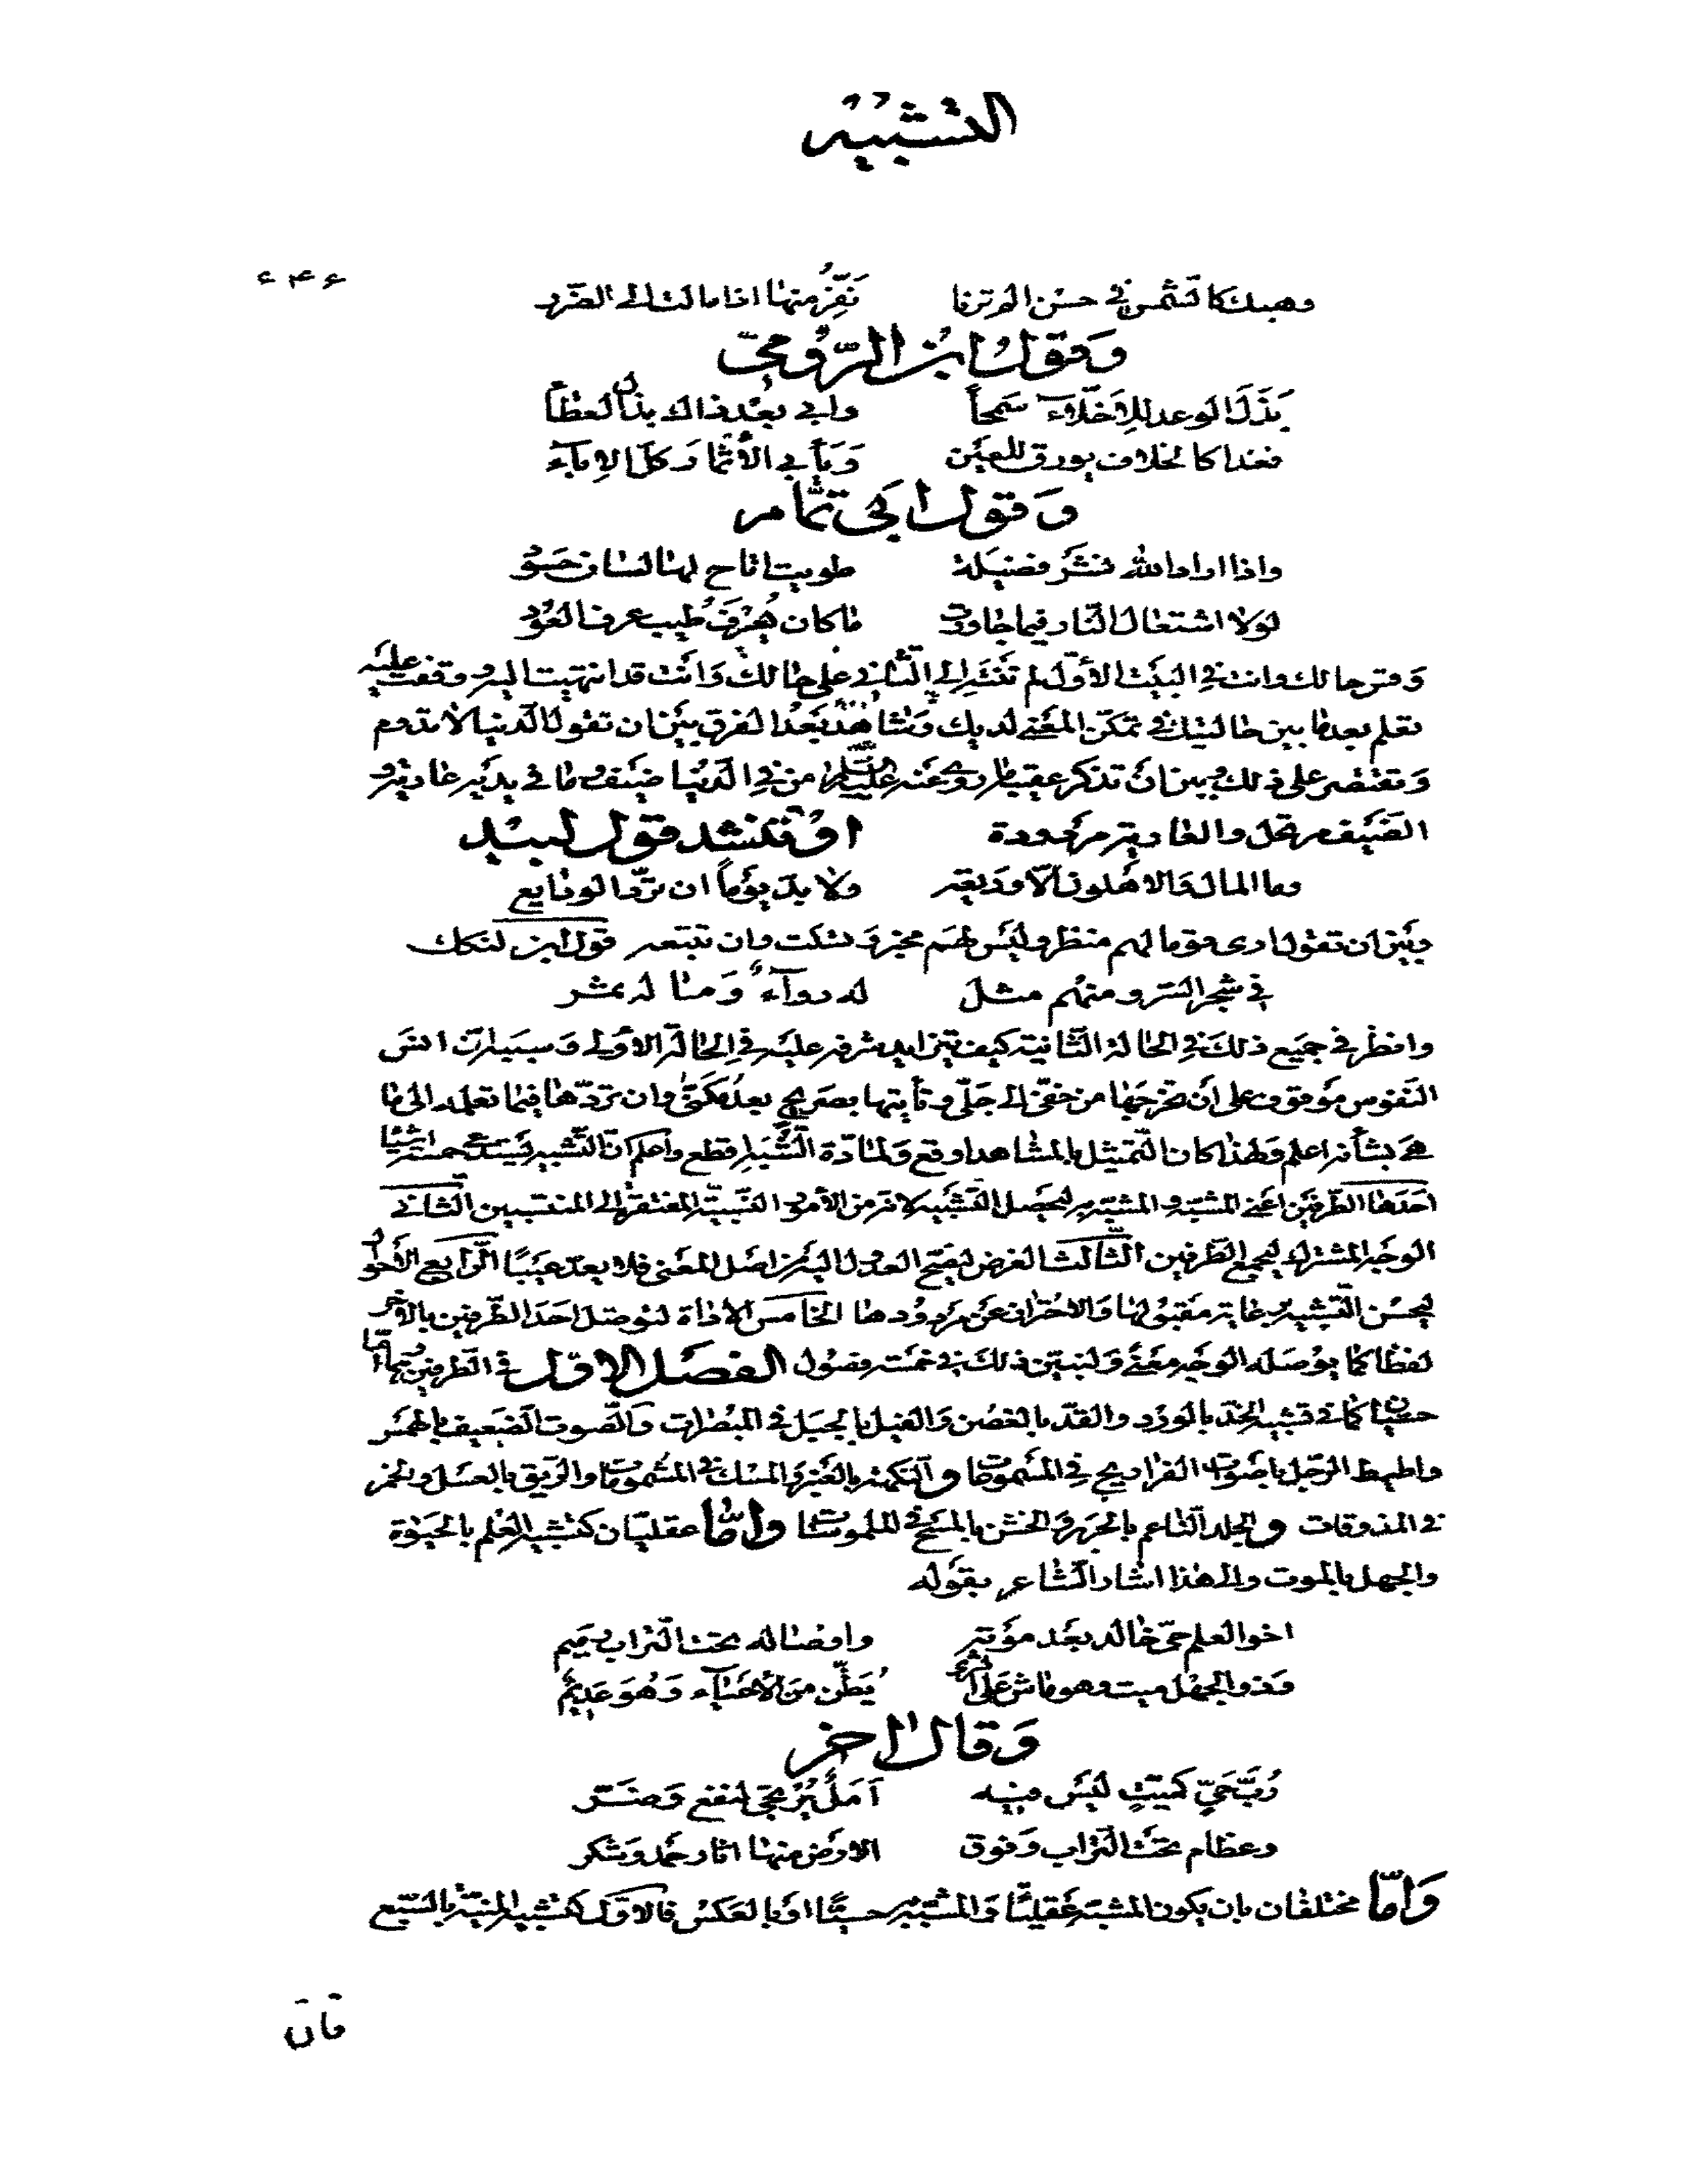 التشبيه
٤٣٤
وهبك كالشمس في حسن الم ترنا    نفر منها اذا مالت الى الضرر
وقول ابن الرومي
بذل الوعد للاخلاء سمحاً    وابى بعد ذاك بذل العطاء
فغدا كالخلاف يورق للعين    ويأبى الأثمار كل الإباء
وقول ابي تمام
واذا اراد الله نشر فضيلة    طويت اتاح لها لسان حسود
لولا اشتعال النار فيما جاورت    ما كان يعرف طيب عرف العود
وقس حالك وانت في البيت الأول لم تنته إلى الثاني على حالك وأنت قد انتهيت اليه ووقفت عليه
تعلم بعد ما بين حالتيك في تمكن المعنى لديك وتشاهد بعد الفرق بين ان تقول الدنيا لا تدوم
وتقتصر على ذلك وبين ان تذكر عقيبه ما روي عنه عليه السلام من في الدنيا ضيف وما في يديه عارية و
الضيف مرتحل والعارية مردودة    او تنشد قول لبيد
وما المال والاهلون الا وديعة    ولا بد يوماً ان ترد الودايع
وبين ان تقول ارى قوما لهم منظر وليس لهم مخبر وتسكت وان تتبعه قول ابن لنكك
في شجر السرو منهم مثل    له رواء وما له ثمر
وانظر في جميع ذلك في الحالة الثانية كيف تتزايد شرفه عليه في الحالة الأولى وسببه ان انس
النفوس موقوف على أن تخرجها من خفي الى جلي وتأتيها بصريح بعد مكني وان تردها فيما تعلمه الى ما
هي بشأنه اعلم ولهذا كان التمثيل بالمشاهد اوقع ولمادة الشبه اقطع واعلم ان التشبيه يستدعي خمسة اشياء
احدها الطرفين اعني المشبه والمشبه به ليحصل التشبيه لانه من الأمور النسبية المفتقرة إلى المنتسبين الثاني
الوجه المشترك ليجمع الطرفين الثالث الغرض ليصح العدول اليه من اصل المعنى فلا يعد عيباً الرابع الأحوال
ليحسن التشبيه برعاية مقبولها والاحتراز عن مردودها الخامس الاداة لتوصل احد الطرفين بالآخر
لفظا كما يوصله الوجه معنى ولنبين ذلك في خمسة فصول الفصل الاول في الطرفين وهما اما
حسيان كما في تشبيه الخد بالورد والقد بالغصن والفيل بالجبل في المبصرات والصوت الضعيف بالهمس
واطيط الرحل باصوات الفراريج في المسموعات والنكهة بالعنبر والمسك في المشمومات والريق بالعسل والخمر
في المذوقات والجلد الناعم بالحرير والخشن بالمسح في الملموسات واما عقليان كتشبيه العلم بالحيوة
والجهل بالموت والى هذا اشار الشاعر بقوله
اخو العلم حي خالد بعد موته    واوصاله تحت التراب رميم
وذو الجهل ميت وهو ماش على الثرى    يظن من الأحياء وهو عديم
وقال اخر
رب حي كميت ليس فيه    امل يرتجى لنفع وضر
وعظام تحت التراب وفوق    الارض منها اثار حمد وشكر
واما مختلفان بان يكون المشبه عقليا والمشبه به حسيا او بالعكس فالاول كتشبيه المنية بالسبع
فان